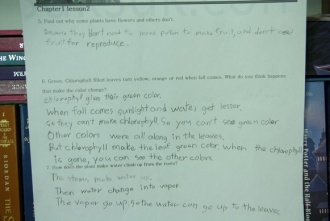 Chapter1 lesson2
5. Find out why some plants have flowers and others don't.
Because they don't need to make pollen to make fruit, and don't need
fruit for reproduce.
6. Green, Chlorophyll filled leaves turn yellow, orange or red when fall comes. What do you think happens
that make the color change?
chlorophyll give their green color,
When fall comes sunlight and water get lesser,
so they can't make chlorophyll so you can't see green color
Other colors were all along in the leaves,
But chlorophyll make the leaf green color, when the chlorophyll
is gone, you can see the other colors.
7. How does the plant make water climb up from the roots?
The stems make water up,
Then water change into vapor
The vapor go up, so the water can go up to the leaves.
THE
WIN